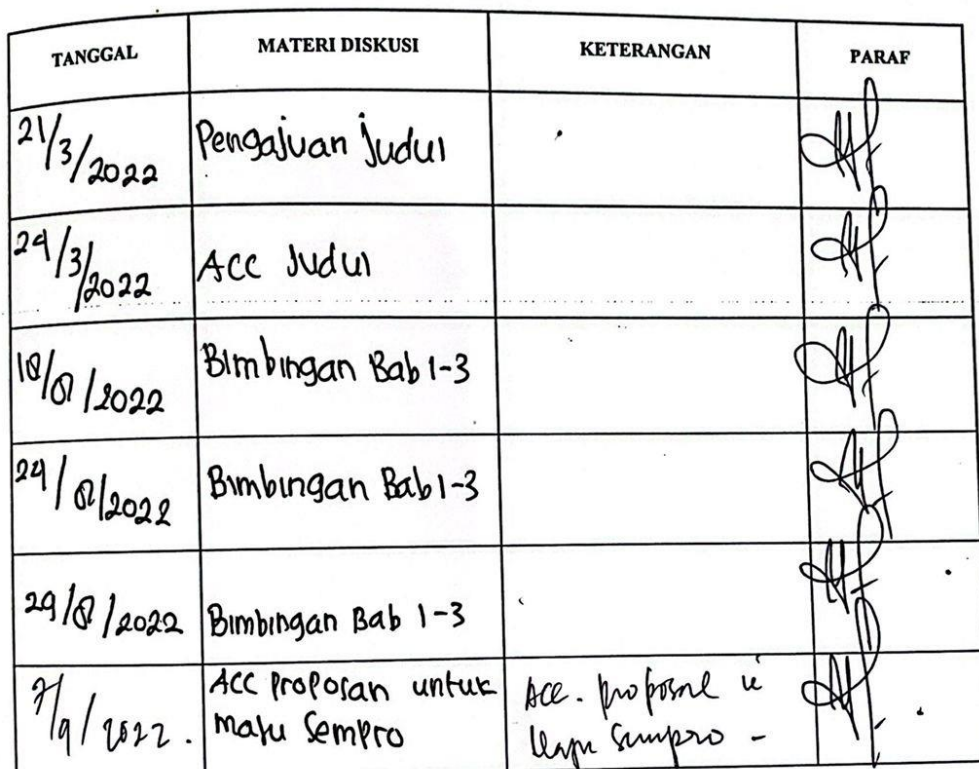 TANGGAL MATERI DISKUSI KETERANGAN PARAF
21/3/2022 Pengajuan Judul
24/3/2022 ACC Judul
18/8/2022 Bimbingan Bab 1-3
24/8/2022 Bimbingan Bab 1-3
29/8/2022 Bimbingan Bab 1-3
7/9/2022. ACC Proposan untuk
maju Sempro
Acc. proposal
Maju Sempro -